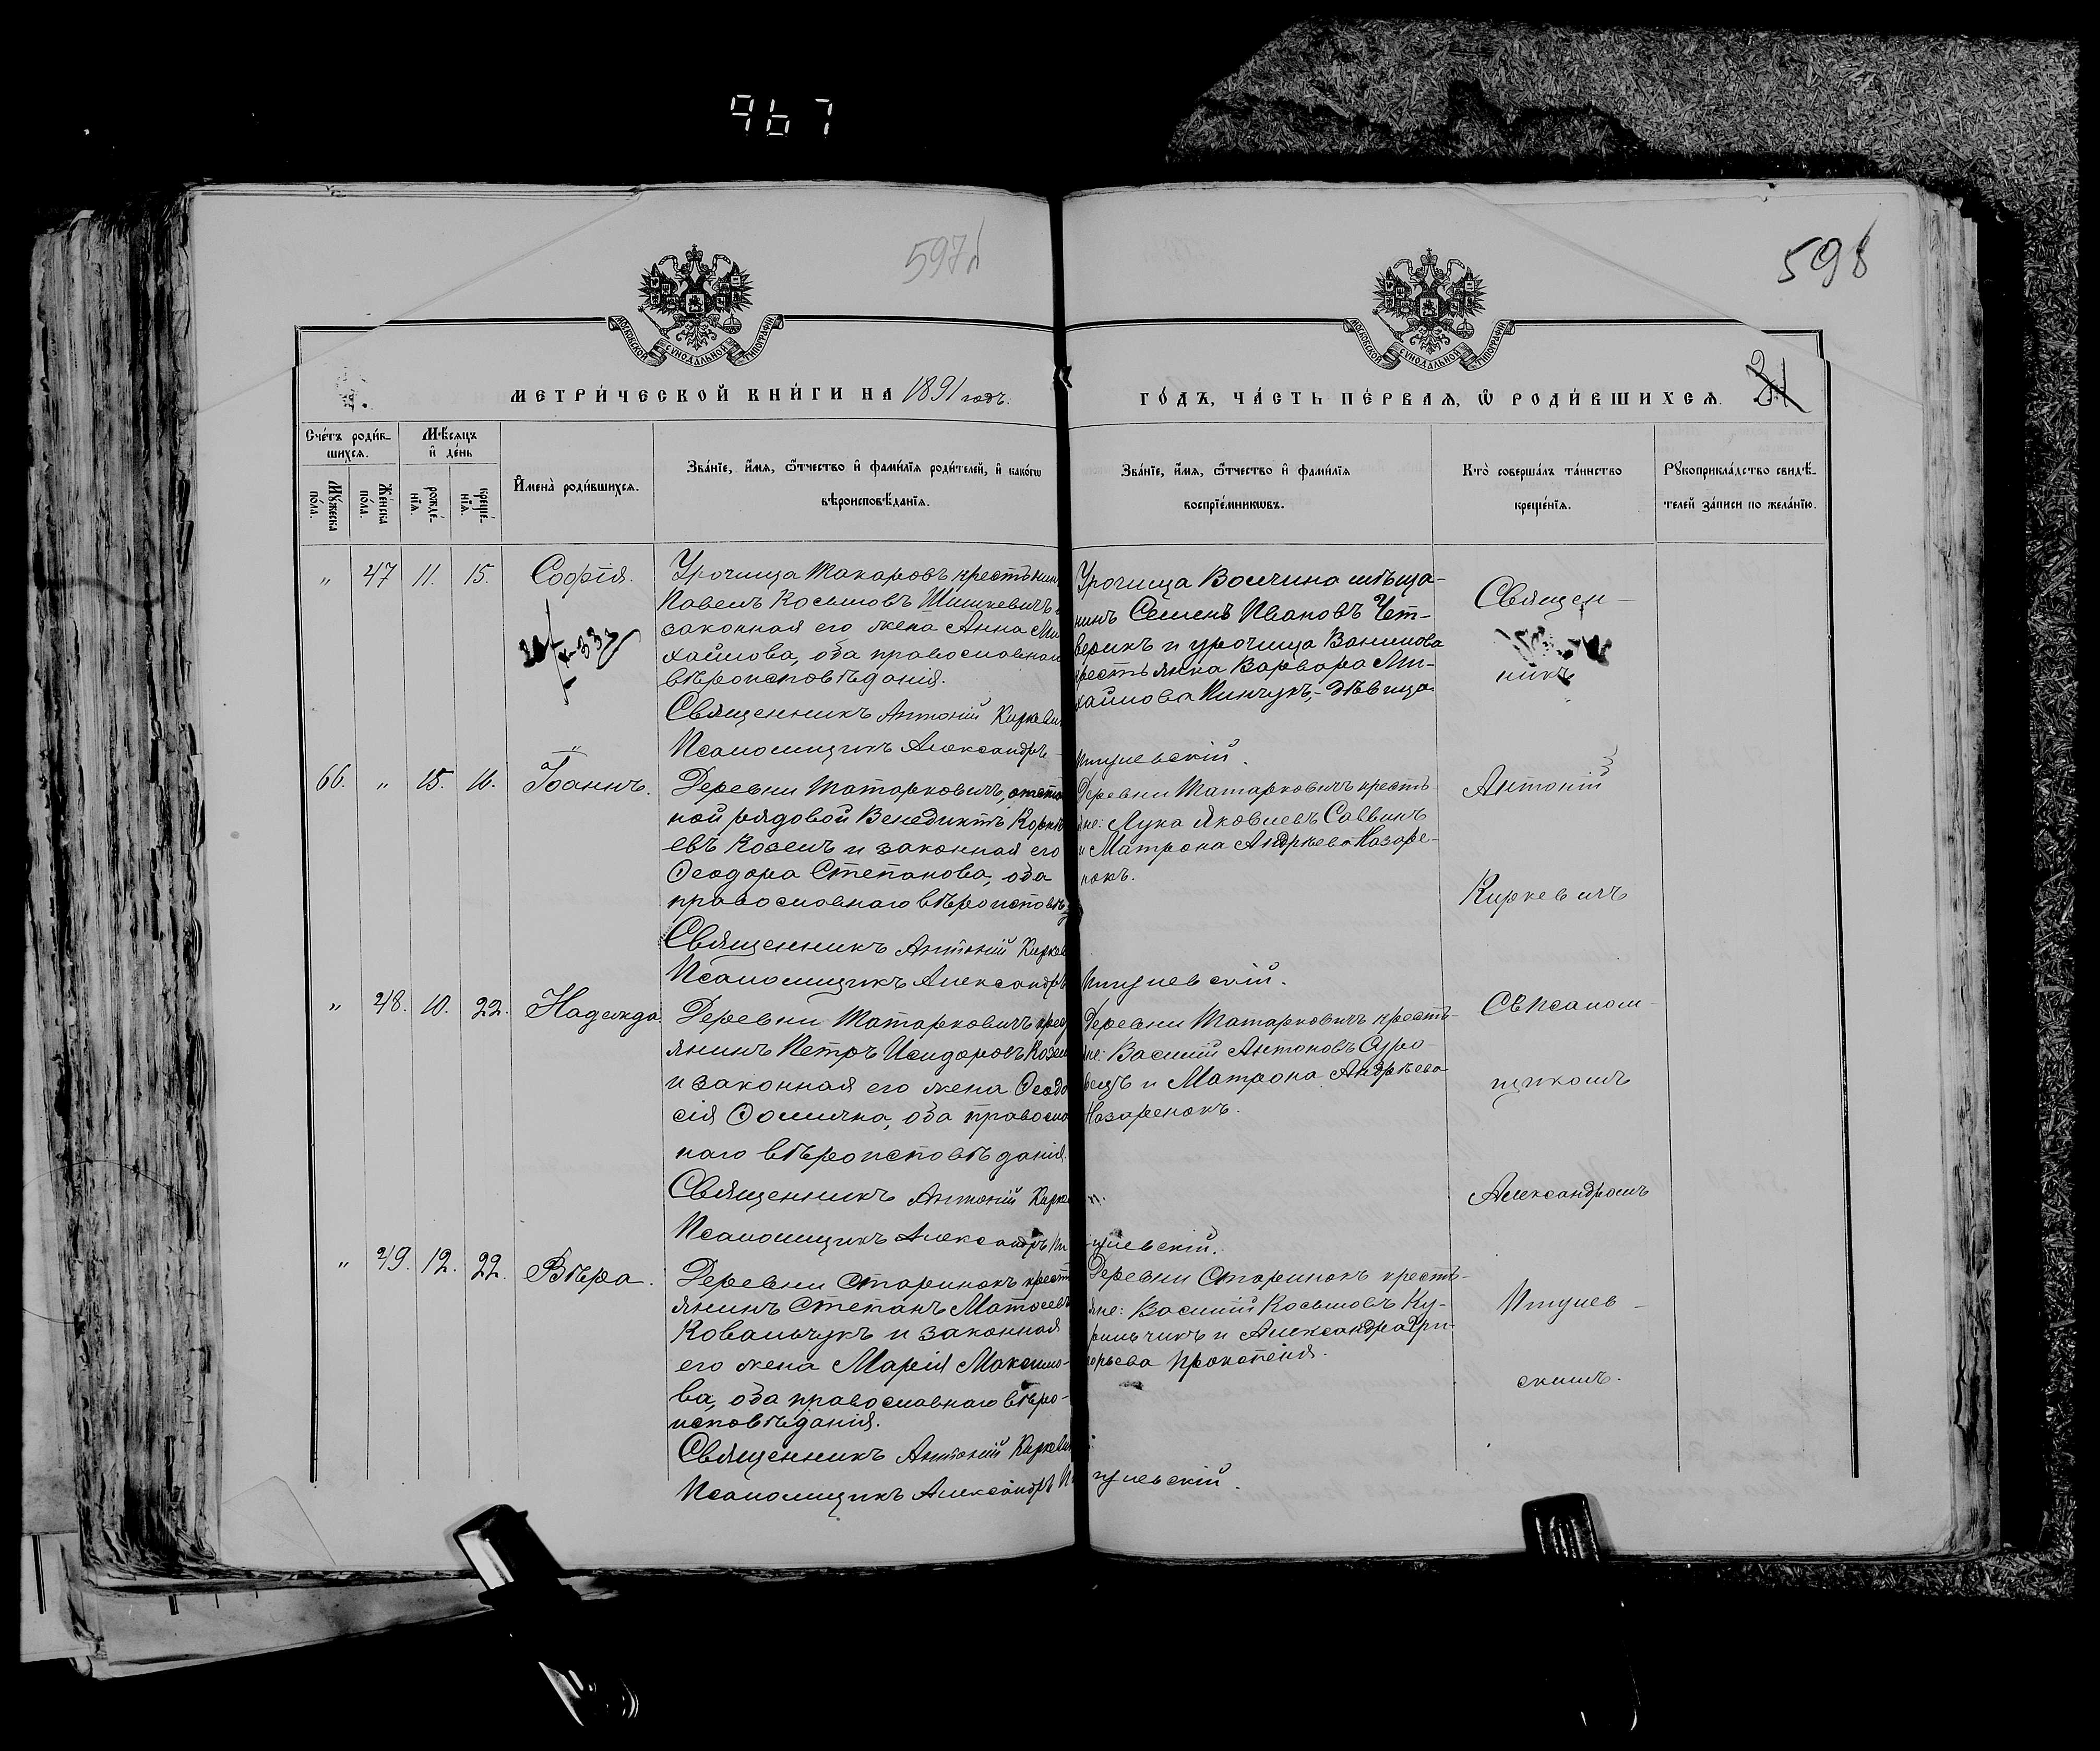 967
597
598
МОСКОВСКОЙ СѴНОДАЛЬНОЙ ТИПОГРАФІИ
МОСКОВСКОЙ СѴНОДАЛЬНОЙ ТИПОГРАФІИ
МЕТРИ́ЧЕСКОЙ КНИ́ГИ НА 1891 годъ.
ГО́ДЪ, ЧА́СТЬ ПЕ́РВАѦ, Ѽ РОДИ́ВШИХСѦ.
Сче́тъ роди́в-
шихсѧ.
Мѣ́сѧцъ
и҆ де́нь
Мꙋ́жеска
по́ла.
Же́нска
по́ла.
рожде́-
нїѧ.
креще́-
нїѧ.
И҆мена̀ роди́вшихсѧ.
Зва́нїе, и҆́мѧ, ѻ҆́тчество и҆ фами́лїѧ роди́телей, и҆ како́гѡ
вѣроисповѣ́данїѧ.
Зва́нїе, и҆́мѧ, ѻ҆́тчество и҆ фами́лїѧ
воспрїе́мникѡвъ.
Кто̀ соверша́лъ та́инство
креще́нїѧ.
Рꙋкоприкла́дство свидѣ́-
телей за́писи по жела́нїю.
" 47 11. 15. Софія.
Урочища Макаровъ крестьянинъ
Павелъ Косьмовъ Шишкевичъ и
законная его жена Анна Ми
хайлова, оба православнаго
вѣроисповѣданія.
Священникъ Антоній Киркевичъ
Псаломщикъ Александръ
Урочища Волчина мѣща-
нинъ Семенъ Ивановъ Чет-
верикъ и урочища Ванилова
крестьянка Варвара Ми-
хайлова Кинчукъ,- дѣвица.
Пщулевскій.
Священ-
никъ
66. " 15. 16. Іоаннъ.
Деревни Татарковичъ, отстав
ной рядовой Венедиктъ Корнѣ
евъ Козелъ и законная его
Ѳеодора Степанова, оба
православнаго вѣроисповѣд
Священникъ Антоній Киркев
Псаломщикъ Александръ
Деревни Татарковичъ кресть
яне: Лука Яковлевъ Саввинъ
и Матрона Андрѣева Назаре-
нокъ.
Пщулевскій.
Антоній
Киркевичъ
" 48. 10. 22. Надежда.
Деревни Татарковичъ крест
янинъ Петръ Исидоровъ Козел
и законная его жена Ѳеодо
сія Ѳомична, оба православ
наго вѣроисповѣданія.
Священникъ Антоній Кирке
Псаломщикъ Александръ
Деревни Татарковичъ кресть-
яне: Василій Антоновъ Суро-
вецъ и Матрона Андрѣева
Назаренокъ.
Пщулевскій.
Св Псалом-
щикомъ
Александромъ
" 49. 12. 22. Вѣра.
Деревни Старинокъ крест
янинъ Степанъ Матѳеевъ
Ковальчукъ и законная
его жена Марія Максимо-
ва, оба православнаго вѣро-
исповѣданія.
Священникъ Антоній Киркевич
Псаломщикъ Александръ
Деревни Старинокъ кресть-
яне: Василій Косьмовъ Ку-
рильчикъ и Александра Гри-
горьева Прокопеня.
Пщулевскій.
Пщулев-
скимъ.